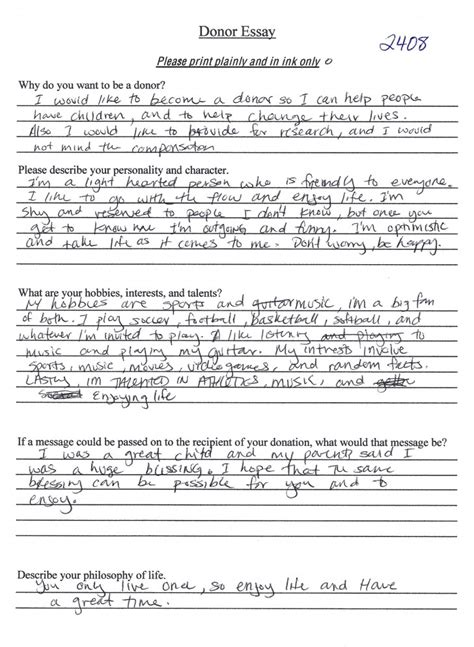 Donor Essay
2408
Please print plainly and in ink only
Why do you want to be a donor?
I would like to become a donor so I can help people
have children, and to help change their lives.
Also I would like to provide for research, and I would
not mind the compensation
Please describe your personality and character.
I'm a light hearted person who is friendly to everyone.
I like to go with the flow and enjoy life. I'm
shy and reserved to people I don't know, but once you
get to know me I'm outgoing and funny. I'm optimistic
and take life as it comes to me. Don't worry, be happy.
What are your hobbies, interests, and talents?
My hobbies are sports and guitar music, i'm a big fan
of both. I play soccer, football, basketball, softball, and
whatever I'm invited to play. I like listening and playing to
music and playing my guitar. My intrests involve
sports, music, movies, videogames, and random facts.
LASTly, im TALENTED IN AThletics, music, and
Enjoying life
If a message could be passed on to the recipient of your donation, what would that message be?
I was a great child and my parents said I
was a huge blissing. I hope that the same
blessing can be possible for you and to
enjoy.
Describe your philosophy of life.
You only live once, so enjoy life and Have
a great time.